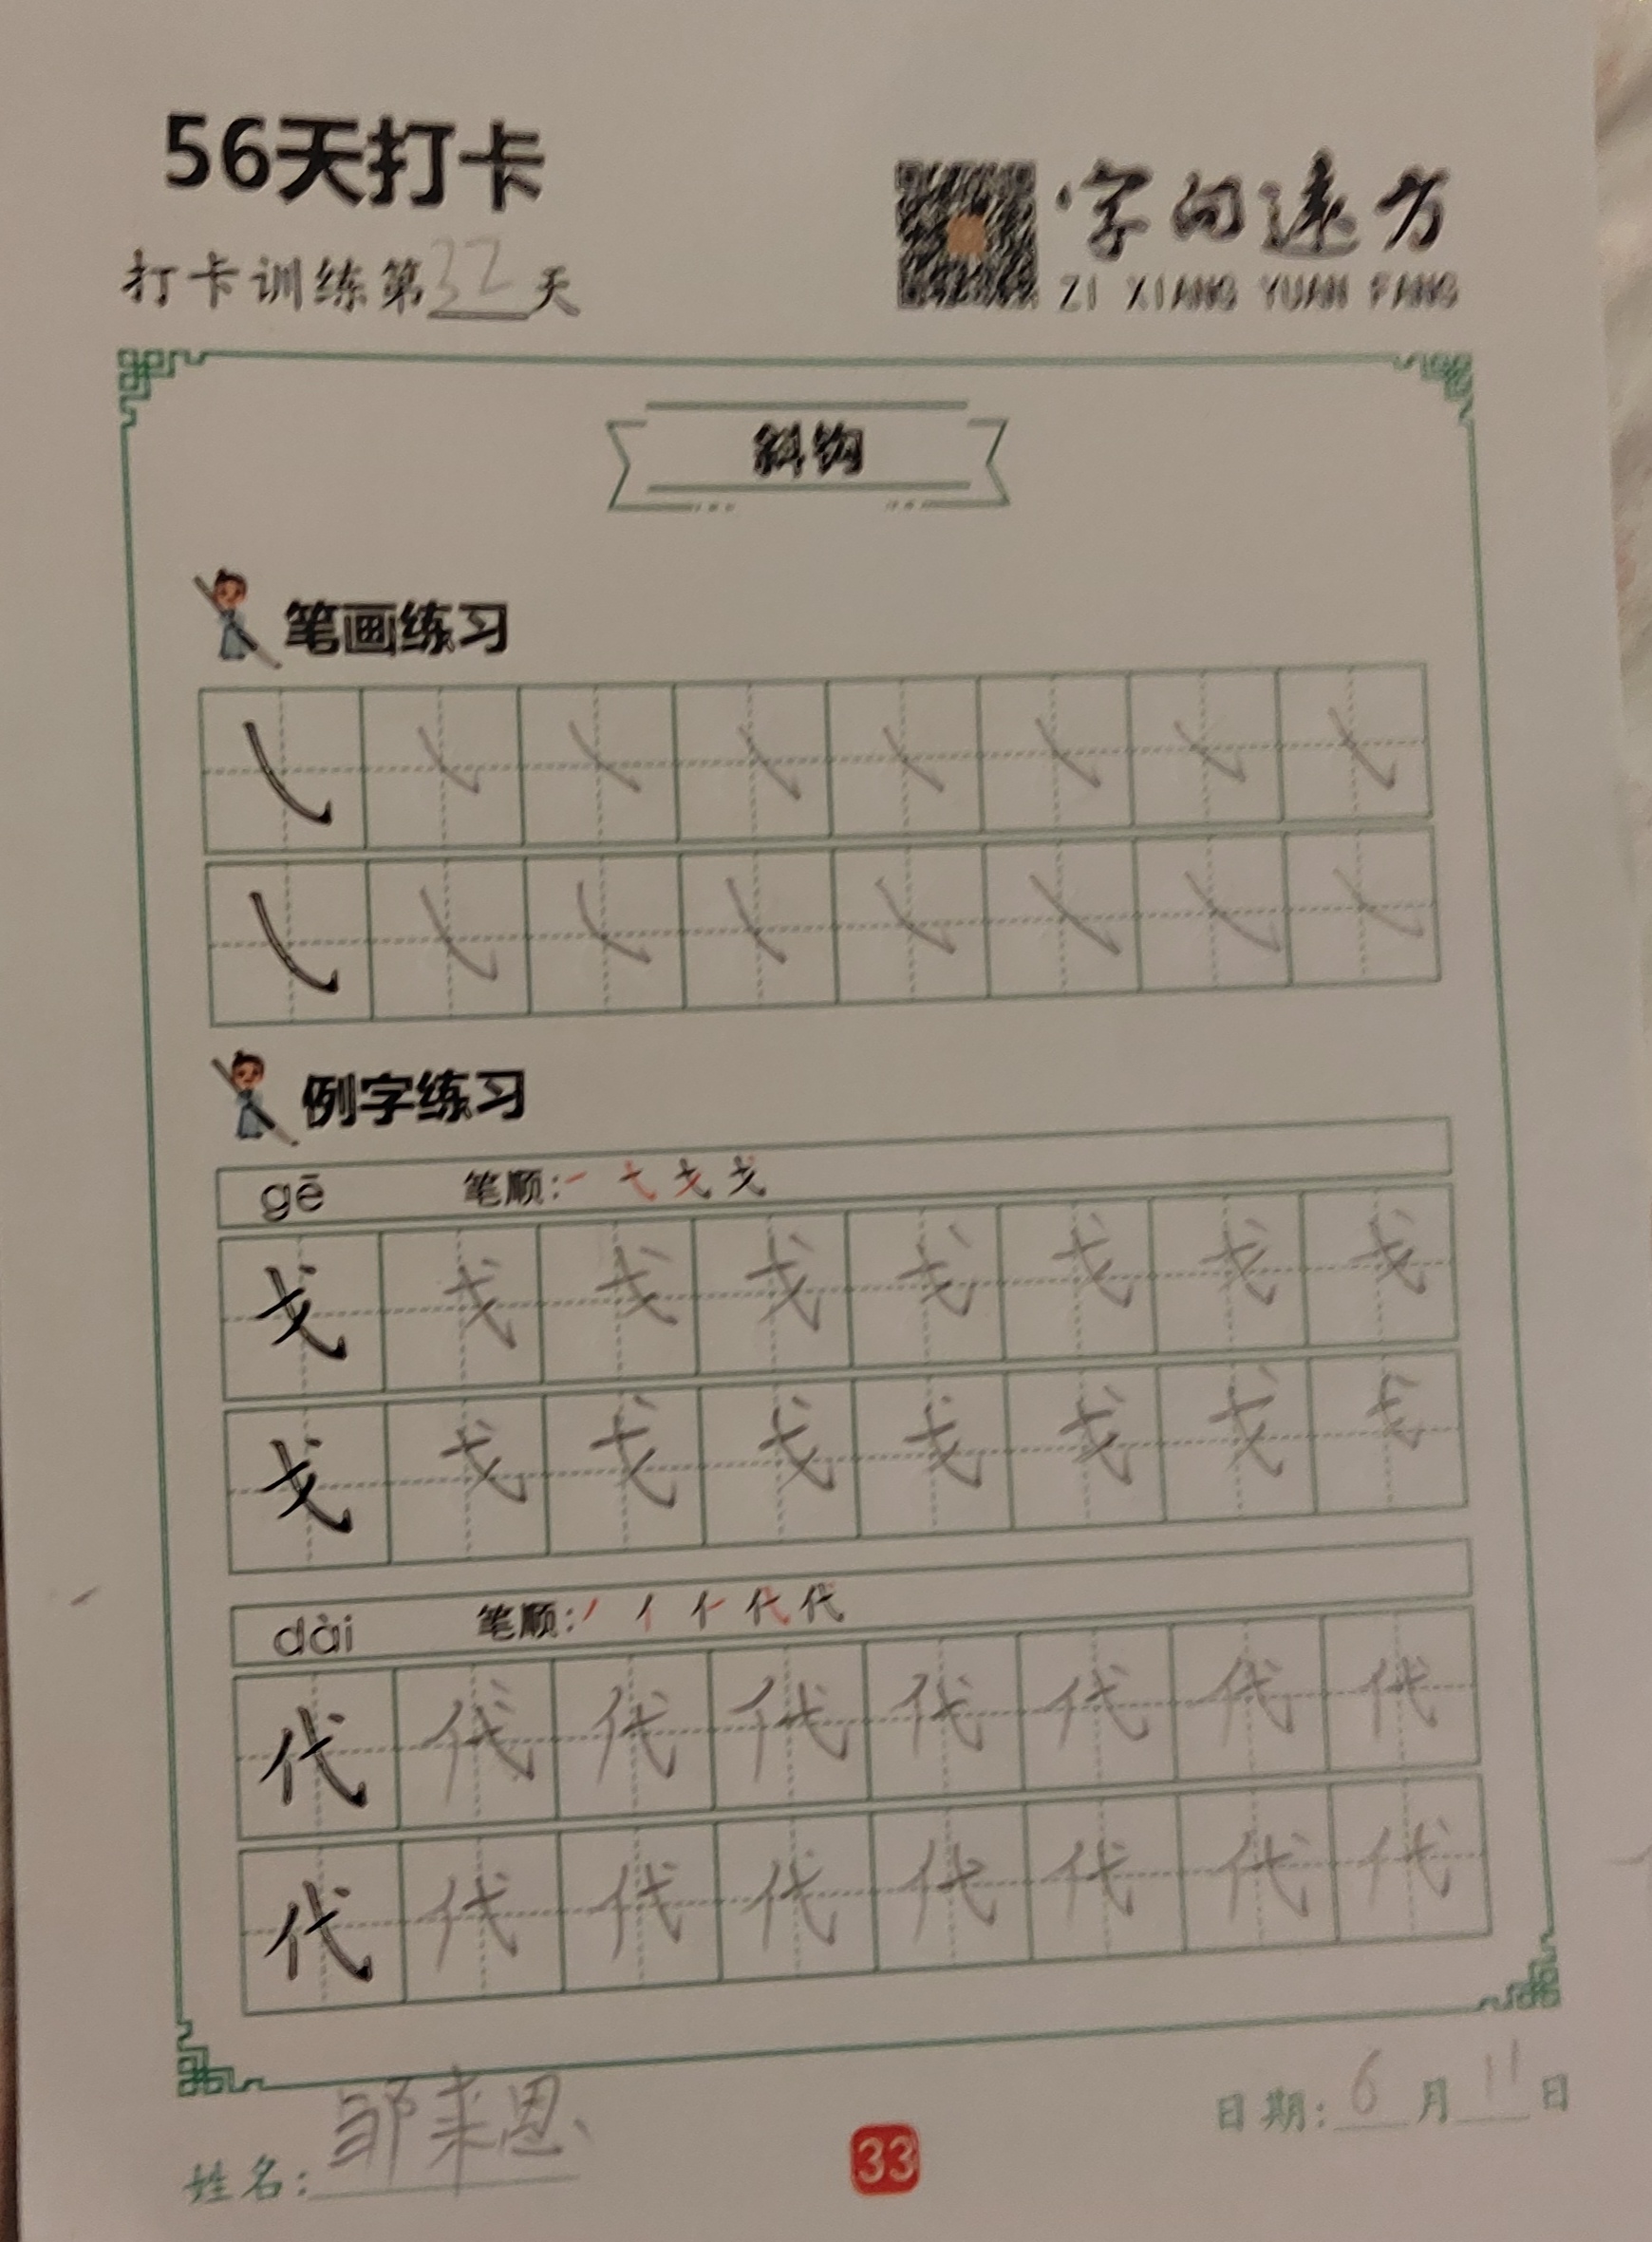 56天打卡
打卡训练第32天
字向远方
ZI XIANG YUAN FANG
斜钩
笔画练习
例字练习
gē 笔顺:一 弋 戈 戈
戈 戈 戈 戈 戈 戈 戈 戈
戈 戈 戈 戈 戈 戈 戈 戈
dài 笔顺:丿 亻 仁 代 代
代 代 代 代 代 代 代 代
代 代 代 代 代 代 代 代
姓名:邹来恩
33
日期:6月11日